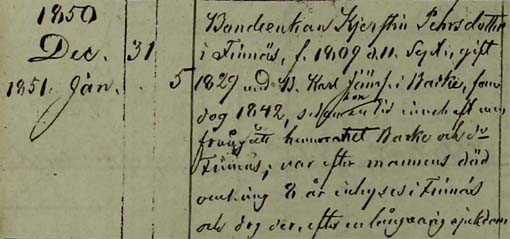 1850
Dec. 31
1851. Jan. 5
Bondeenkan Kjerstin Pehrsdotter
i Finnäs, f. 1809 d. 11. Sept., gift
1829 med B. Karl i Backe, som
dog 1842, sedan hon en tid
från hemmanet Backe och
Finnäs; var efter mannens död
omkring 8 år inhyses i Finnäs
och dog der, efter en långvarig sjukdom